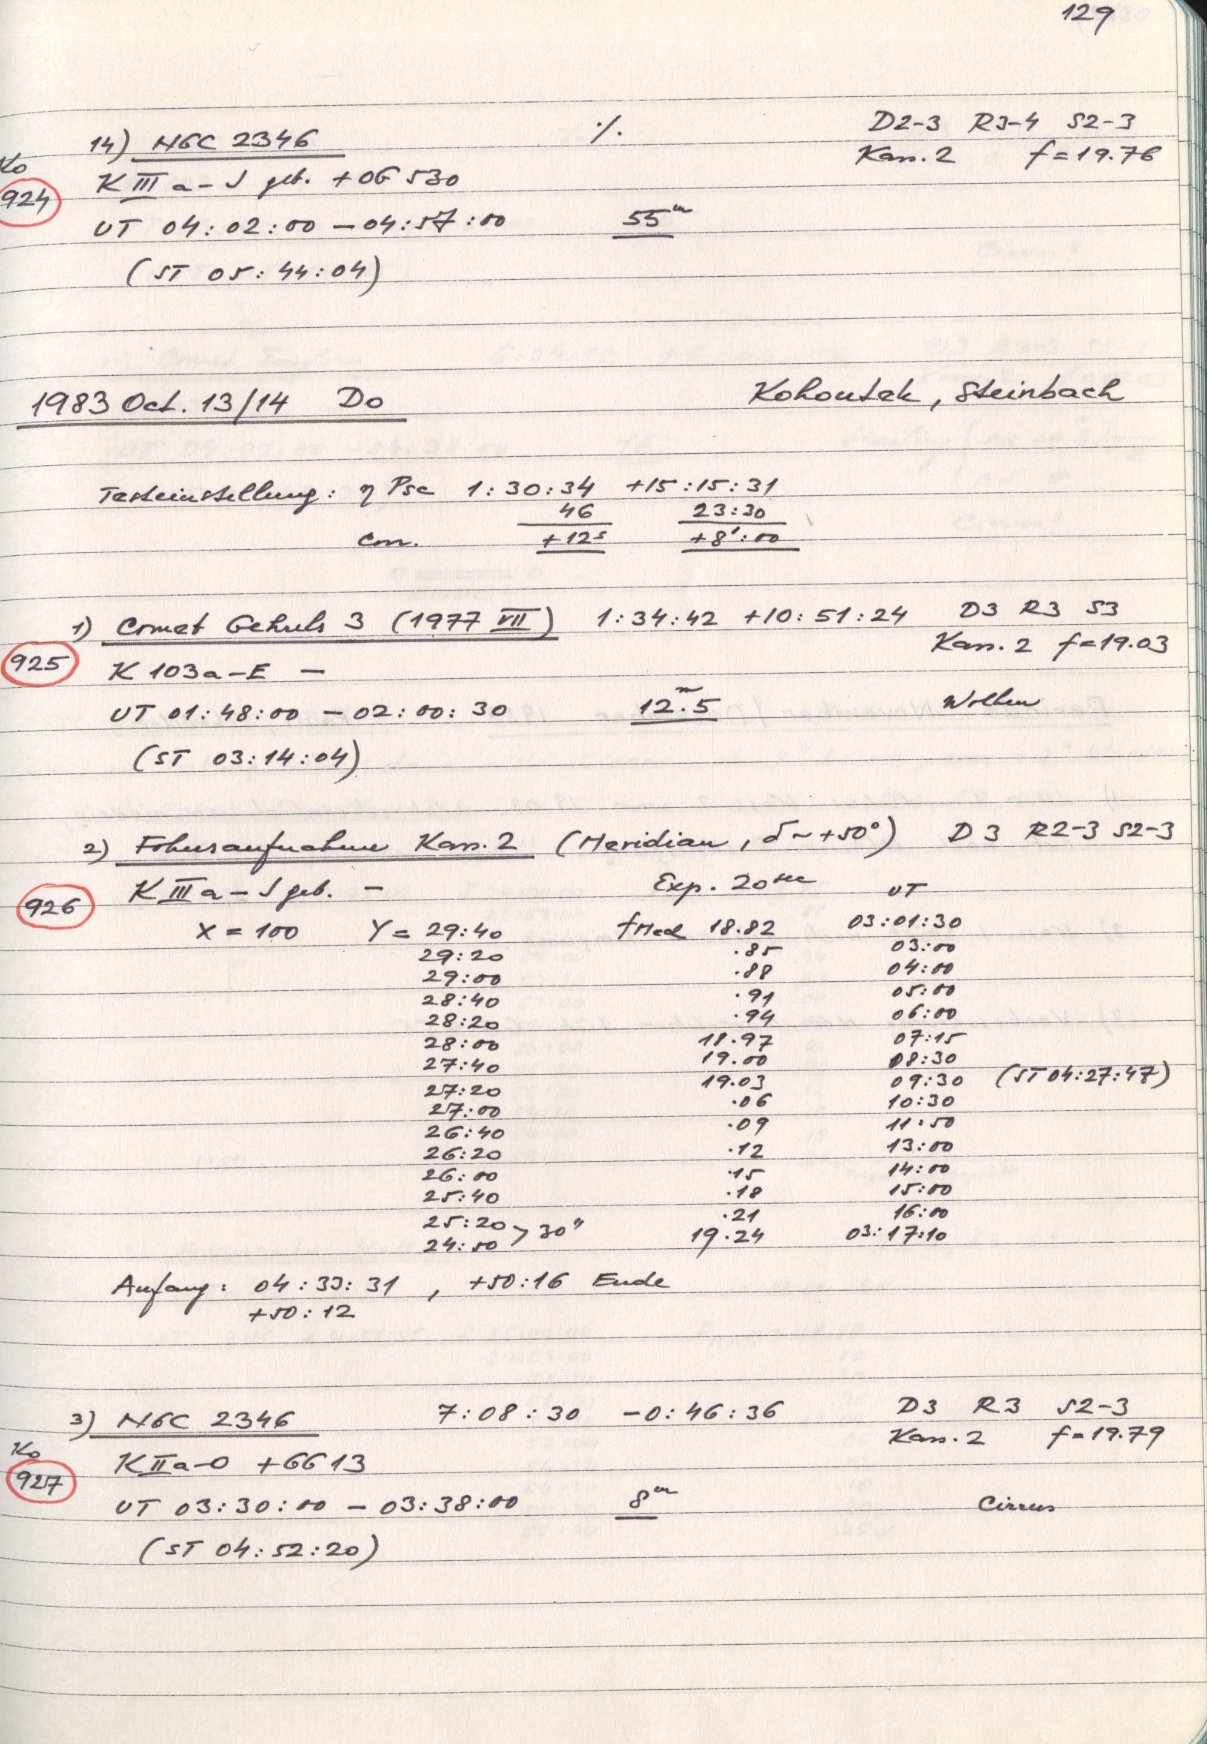 129
14) NGC 2346 ·/. D2-3 R3-4 S2-3
Ko Kass. 2 f = 19.76
924 K III a-J geb. + OG 530
UT 04:02:00 – 04:57:00 55ᵐ
(ST 05:44:04)
1983 Oct. 13/14 Do Kohoutek, Steinbach
Testeinstellung: η Psc 1:30:34 +15:15:31
46 23:30
Corr. +12ˢ +8':00
1) Comet Gehrels 3 (1977 VII) 1:34:42 +10:51:24 D3 R3 S3
925 Kass. 2 f = 19.03
K 103a-E –
UT 01:48:00 – 02:00:30 12ᵐ.5 Wolken
(ST 03:14:04)
2) Fokusaufnahme Kass. 2 (Meridian, δ ~ +50°) D3 R2-3 S2-3
926 K III a-J geb. – Exp. 20sec UT
X = 100 Y = 29:40 fMed 18.82 03:01:30
29:20 .85 03:00
29:00 .88 04:00
28:40 .91 05:00
28:20 .94 06:00
28:00 18.97 07:15
27:40 19.00 08:30
27:20 19.03 09:30 (ST 04:27:47)
27:00 .06 10:30
26:40 .09 11:50
26:20 .12 13:00
26:00 .15 14:00
25:40 .18 15:00
25:20 .21 16:00
24:50 > 30" 19.24 03:17:10
Anfang: 04:33:31 , +50:16 Ende
+50:12
3) NGC 2346 7:08:30 –0:46:36 D3 R3 S2-3
Ko Kass. 2 f = 19.79
927 K II a-O + GG 13
UT 03:30:00 – 03:38:00 8ᵐ Cirrus
(ST 04:52:20)